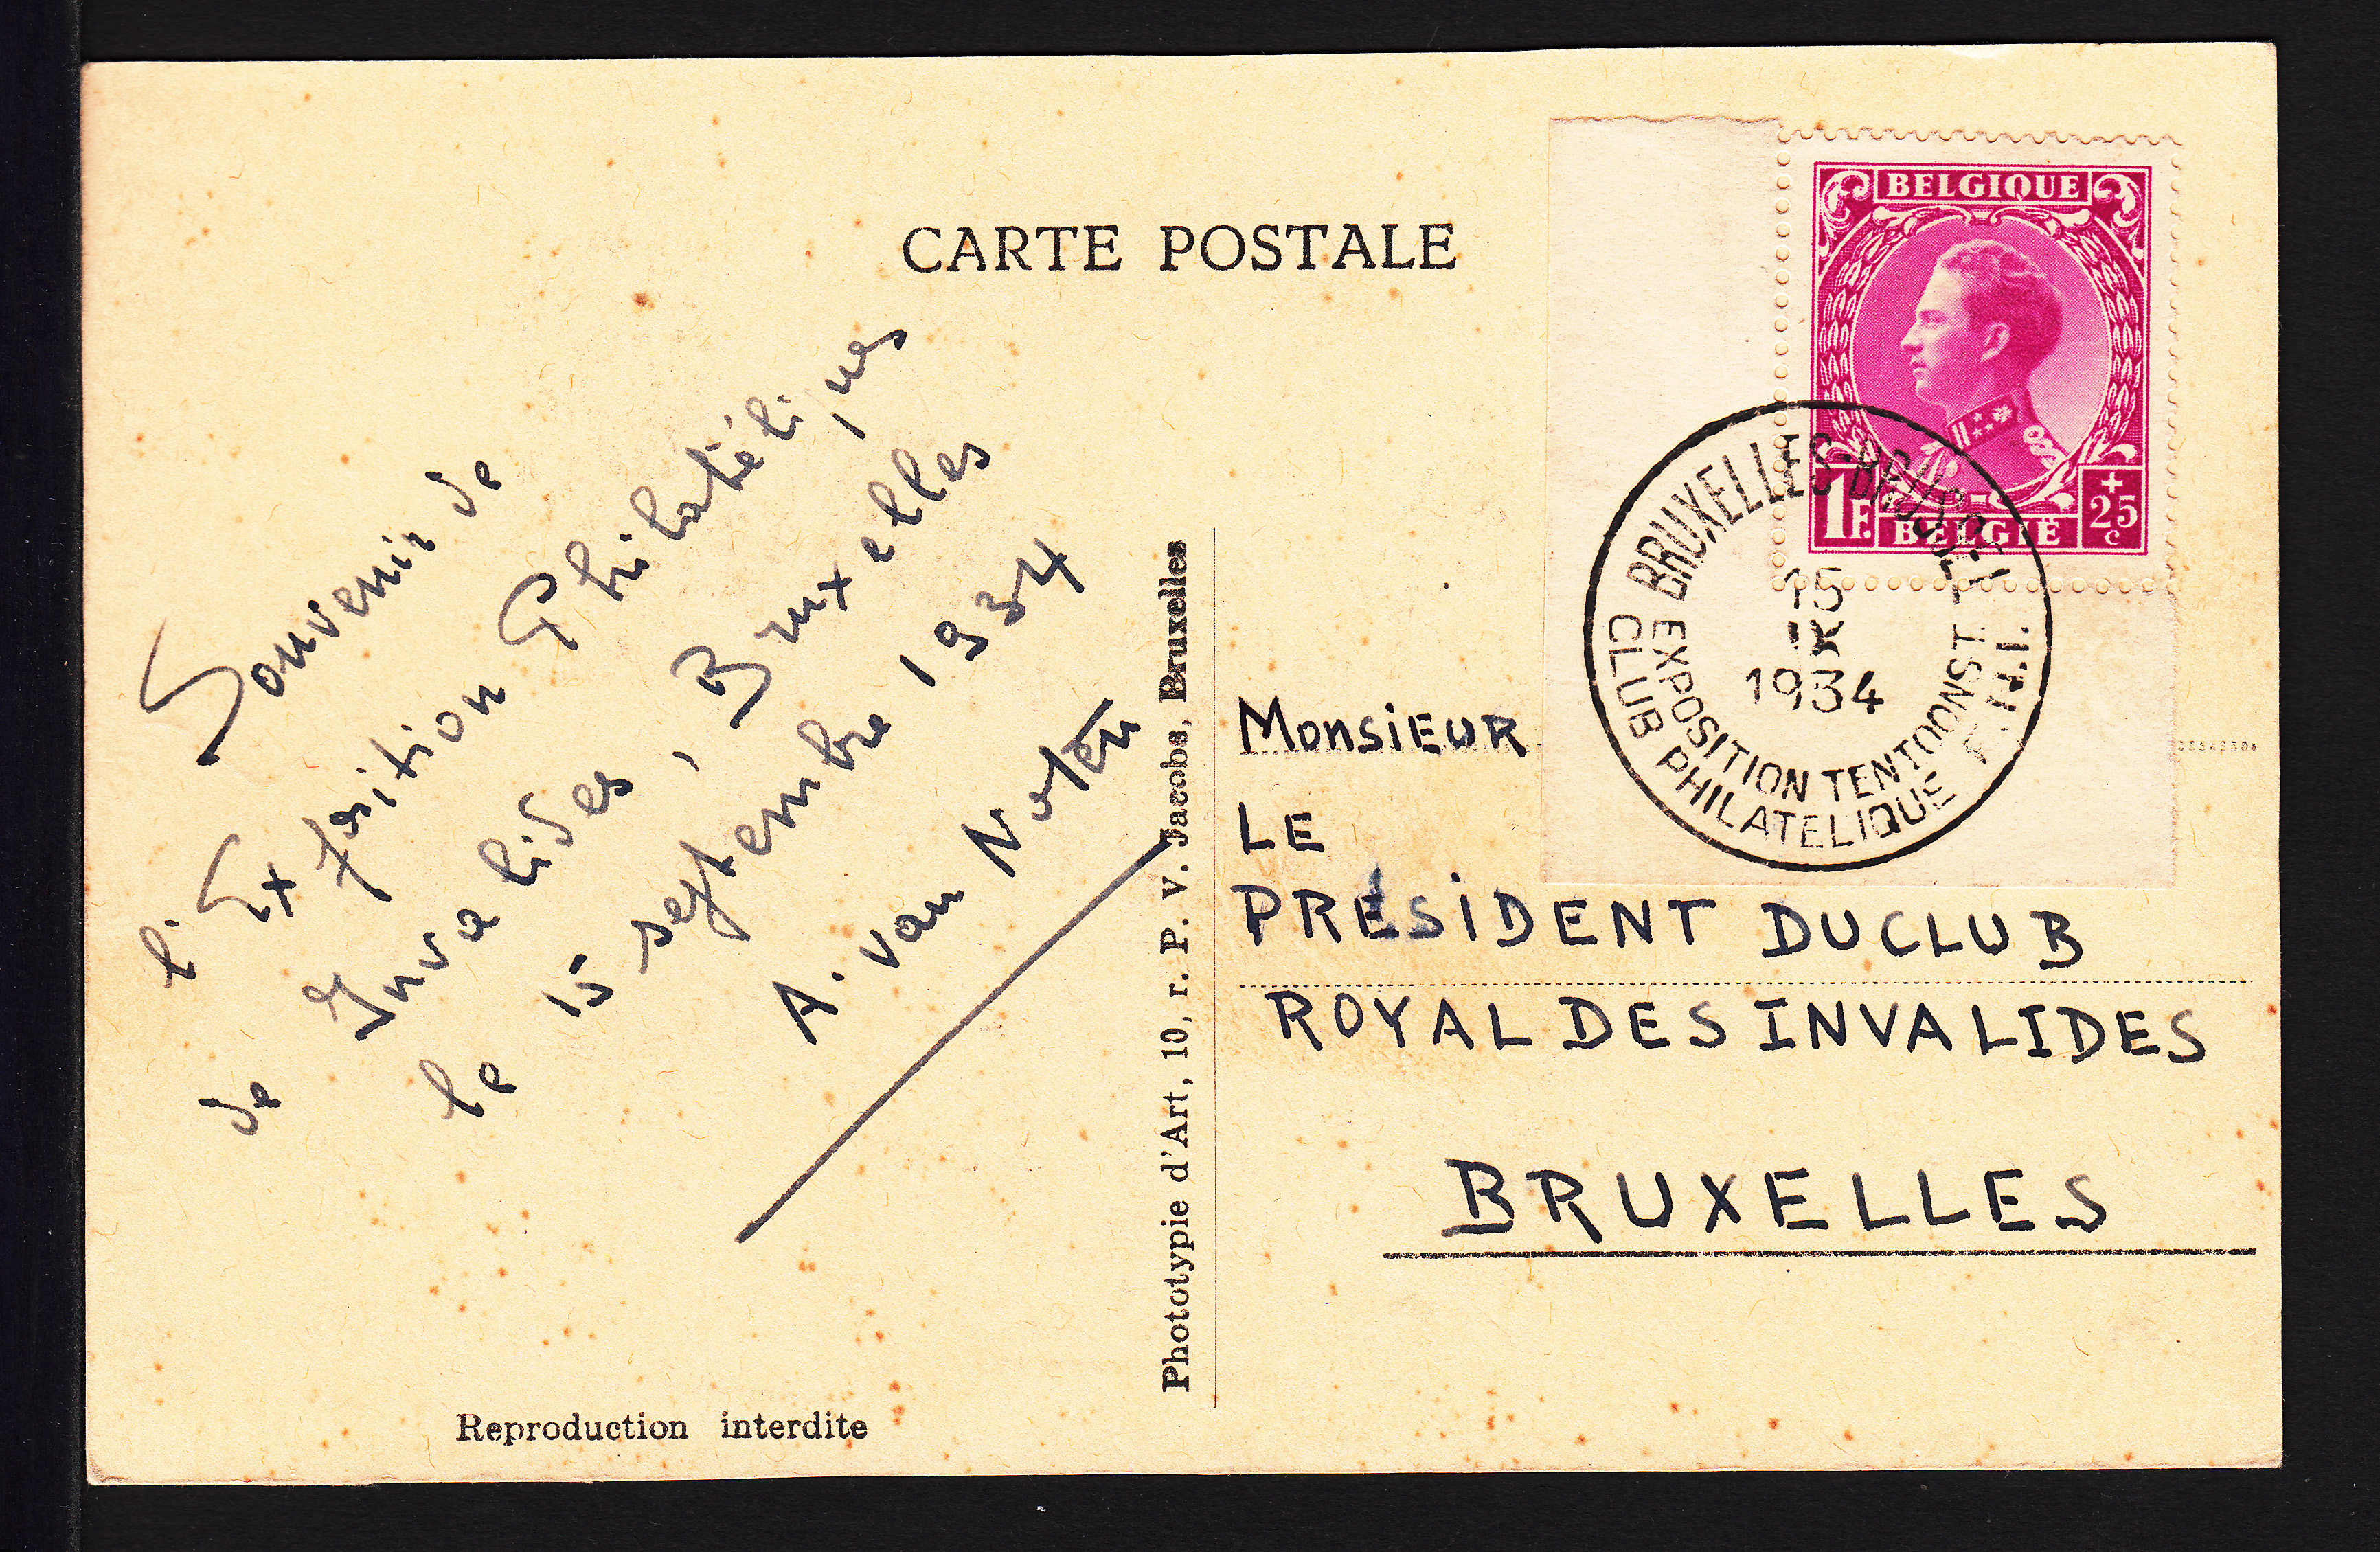 CARTE POSTALE
BELGIQUE
1F.
BELGIË
+25c
BRUXELLES-BRUSSEL
15
IX
1934
EXPOSITION TENTOONST.
CLUB PHILATELIQUE F.N.I.
Souvenir de
l'Exposition Philatéliques
de Invalides, Bruxelles
le 15 septembre 1934
A. van Noten
Phototypie d'Art, 10, r. P. V. Jacobs, Bruxelles
Monsieur
LE
PRÉSIDENT DU CLUB
ROYAL DES INVALIDES
BRUXELLES
Reproduction interdite